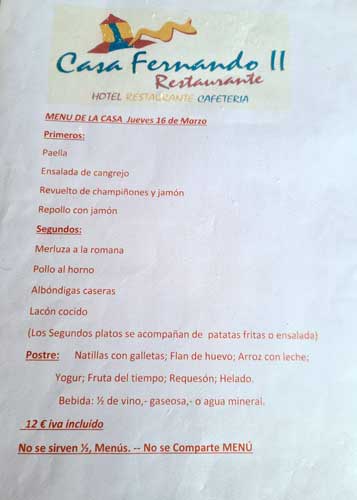 Casa Fernando II
Restaurante
HOTEL RESTAURANTE CAFETERIA
MENU DE LA CASA Jueves 16 de Marzo
Primeros:
Paella
Ensalada de cangrejo
Revuelto de champiñones y jamón
Repollo con jamón
Segundos:
Merluza a la romana
Pollo al horno
Albóndigas caseras
Lacón cocido
(Los Segundos platos se acompañan de patatas fritas o ensalada)
Postre: Natillas con galletas; Flan de huevo; Arroz con leche;
Yogur; Fruta del tiempo; Requesón; Helado.
Bebida: ½ de vino,- gaseosa,- o agua mineral.
12 € iva incluido
No se sirven ½, Menús. -- No se Comparte MENÚ